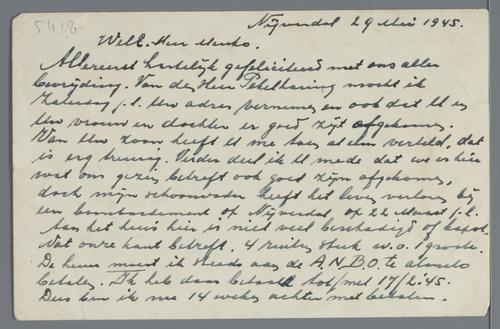 5418
Nijverdal 29 Mei 1945.
WelE. Heer Menko.
Allereerst hartelijk gefeliciteerd met ons aller
bevrijding. Van den Heer Pekelharing mocht ik
Zaterdag j.l. Uw adres vernemen en ook dat U en
Uw vrouw en dochter er goed zijt afgekomen.
Van Uw zoon heeft U me toen al een verteld, dat
is erg treurig. Verder deel ik U mede dat we er hier
wat ons gezin betreft ook goed zijn afgekomen,
doch mijn schoonvader heeft het leven verloren bij
een bombardement op Nijverdal, op 22 Maart j.l.
Aan het huis hier is niet veel beschadigd of kapot.
Wat onze kant betreft. 4 ruiten stuk w.o. 1 groote.
De huur moest ik steeds aan de A.N.B.O. te Almelo
betalen. Ik heb daar betaald tot/met 17/2.'45.
Dus ben ik nu 14 weken achter met betalen.